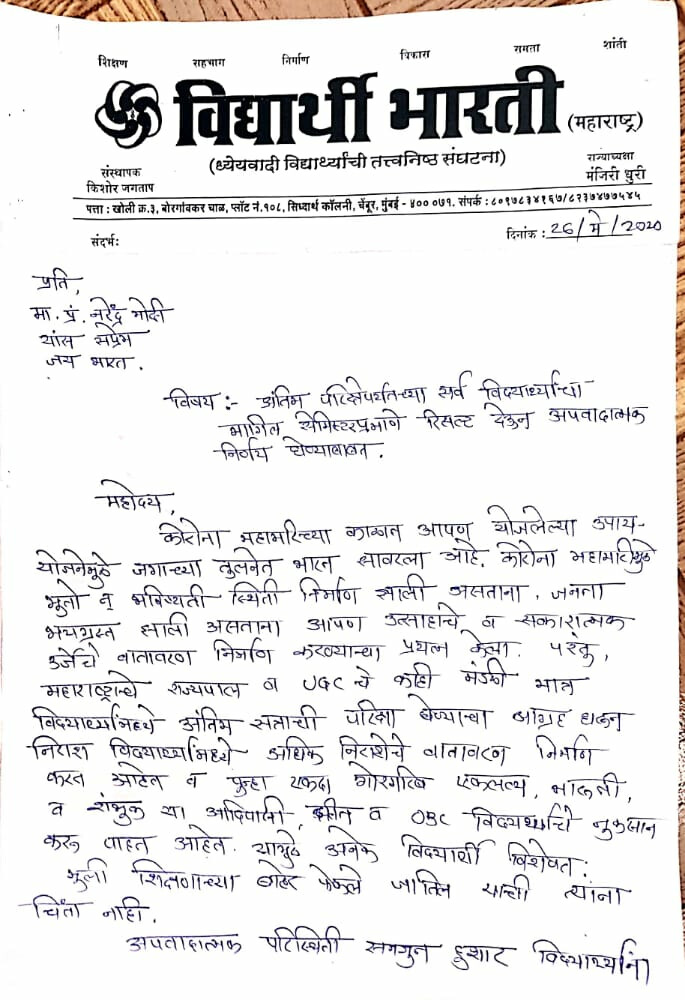 शिक्षण सहभाग निर्माण विकास समता शांती
विद्यार्थी भारती (महाराष्ट्र)
(ध्येयवादी विद्यार्थ्यांची तत्त्वनिष्ठ संघटना)
संस्थापक राज्याध्यक्षा
किशोर जगताप मंजिरी धुरी
पत्ता : खोली क्र.३, बोरगांवकर चाळ, प्लॉट नं.१०८, सिध्दार्थ कॉलनी, चेंबूर, मुंबई - ४०० ०७१. संपर्क : ८०९७८३४१६७/८२३७४७७५४५
संदर्भ: दिनांक : 26/मे/2020
प्रति,
मा. प्रं. नरेंद्र मोदी
यांस सप्रेम
जय भारत.
विषय :- अंतिम परिक्षेपर्यंतच्या सर्व विद्यार्थ्यांचा
मागिल सेमिस्टरप्रमाणे रिसल्ट देऊन अपवादात्मक
निर्णय घेण्याबाबत.
महोदय,
कोरोना महामारीच्या काळात आपण योजलेल्या उपाय-
योजनेमुळे जगाच्या तुलनेत भारत सावरला आहे. कोरोना महामारीमुळे
भूतो न भविष्यती स्थिती निर्माण झाली असताना, जनता
भयग्रस्त झाली असताना आपण उत्साहाचे व सकारात्मक
उर्जेचे वातावरण निर्माण करण्याचा प्रयत्न केला. परंतु,
महाराष्ट्राचे राज्यपाल व UGC चे काही मंडळी मात्र
विद्यार्थ्यांमध्ये अंतिम सत्राची परिक्षा घेण्याचा आग्रह धरून
निराश विद्यार्थ्यांमध्ये अधिक निराशेचे वातावरण निर्माण
करत आहेत व पुन्हा एकदा गोरगरिब एकलव्य,
व शंभुक या आदिवासी, दलीत व OBC विद्यार्थ्यांचे नुकसान
करू पाहत आहेत. यामुळे अनेक विद्यार्थी विशेषत:
मुली शिक्षणाच्या बाहेर फेकले जातिल याची त्यांना
चिंता नाही.
अपवादात्मक परिस्थिती समजुन हुशार विद्यार्थ्यांना